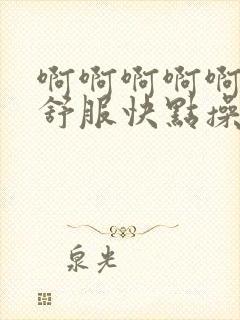 啊啊啊啊啊
舒服快點操
泉光